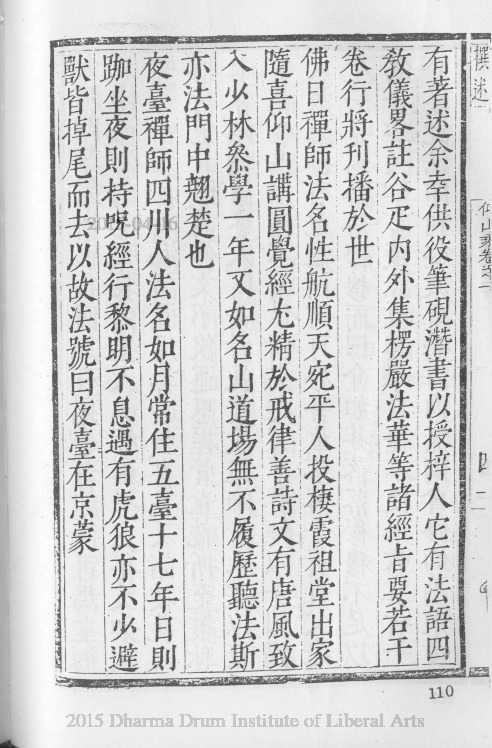 有著述余幸供役筆硯潛書以授梓人它有法語四
敎儀畧註谷𤴓內外集楞嚴法華等諸經㫖要若干
卷行將刊播於世
佛日禪師法名性航順天宛平人投棲霞祖堂出家
隨喜仰山講圓覺經尢精於戒律善詩文有唐風致
入少林叅學一年又如名山道塲無不履歷聽法斯
亦法門中翹楚也
夜臺禪師四川人法名如月常住五臺十七年日則
跏坐夜則持呪經行黎明不息遇有虎狼亦不少避
獸皆掉尾而去以故法號曰夜臺在京蒙
撰述
110
2015 Dharma Drum Institute of Liberal Arts